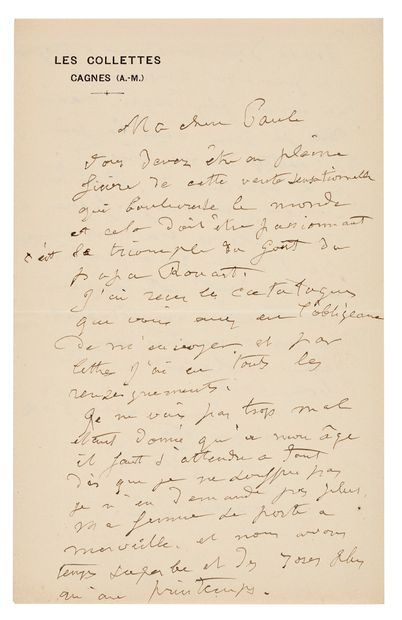 LES COLLETTES
CAGNES (A.-M.)
Ma chere Paule
Vous devez être en pleine
fièvre de cette vente sensationnelle
qui bouleverse le monde
et cela doit être passionnant
c'est le triomphe du gout du
papa Rouart.
J'ai reçu les catalogues
que vous avez eu l'obligeance
de m'envoyer et par
lettre j'ai eu tous les
renseignements.
Je ne vais pas trop mal
étant donné qu'a mon âge
il faut s'attendre a tout
dès que je ne souffre pas
je n'en demande pas plus.
Ma femme se porte a
merveille. et nous avons
temps superbe et des roses plus
qu'au printemps.